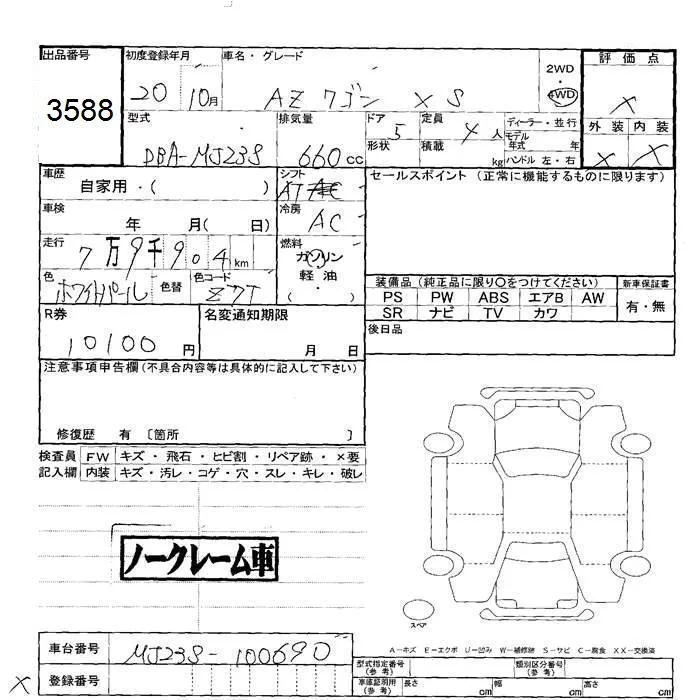 出品番号 初度登録年月 車名・グレード 2WD 評価点
3588 20 10月 AZワゴン XS 4WD X
型式 排気量 ドア 5 定員 4人 ディーラー・並行 外装 内装
DBA-MJ23S 660cc 形状 積載 kg モデル年式 年 X X
ハンドル 左・右
車歴 自家用・( ) シフト AT セールスポイント (正常に機能するものに限ります)
車検 年 月( 日) 冷房 AC
走行 7万9千904km 燃料 ガソリン
軽油
・( )
色 ホワイトパール 色替 色コード Z7T 装備品(純正品に限り○をつけてください) 新車保証書
PS PW ABS エアB AW 有・無
SR ナビ TV カワ
R券 10100円 名変通知期限 月 日 後日品
注意事項申告欄(不具合内容等は具体的に記入して下さい)
修復歴 有 〔箇所 〕
検査員 FW キズ・飛石・ヒビ割・リペア跡・×要
記入欄 内装 キズ・汚レ・コゲ・穴・スレ・キレ・破レ
ノークレーム車
スペア
A−キズ E−エクボ U−凹み W−補修跡 S−サビ C−腐食 XX−交換済
車台番号 MJ23S-100690 型式指定番号(参考) 類別区分番号(参考)
X 登録番号 車庫証明用(参考) 長さ cm 幅 cm 高さ cm